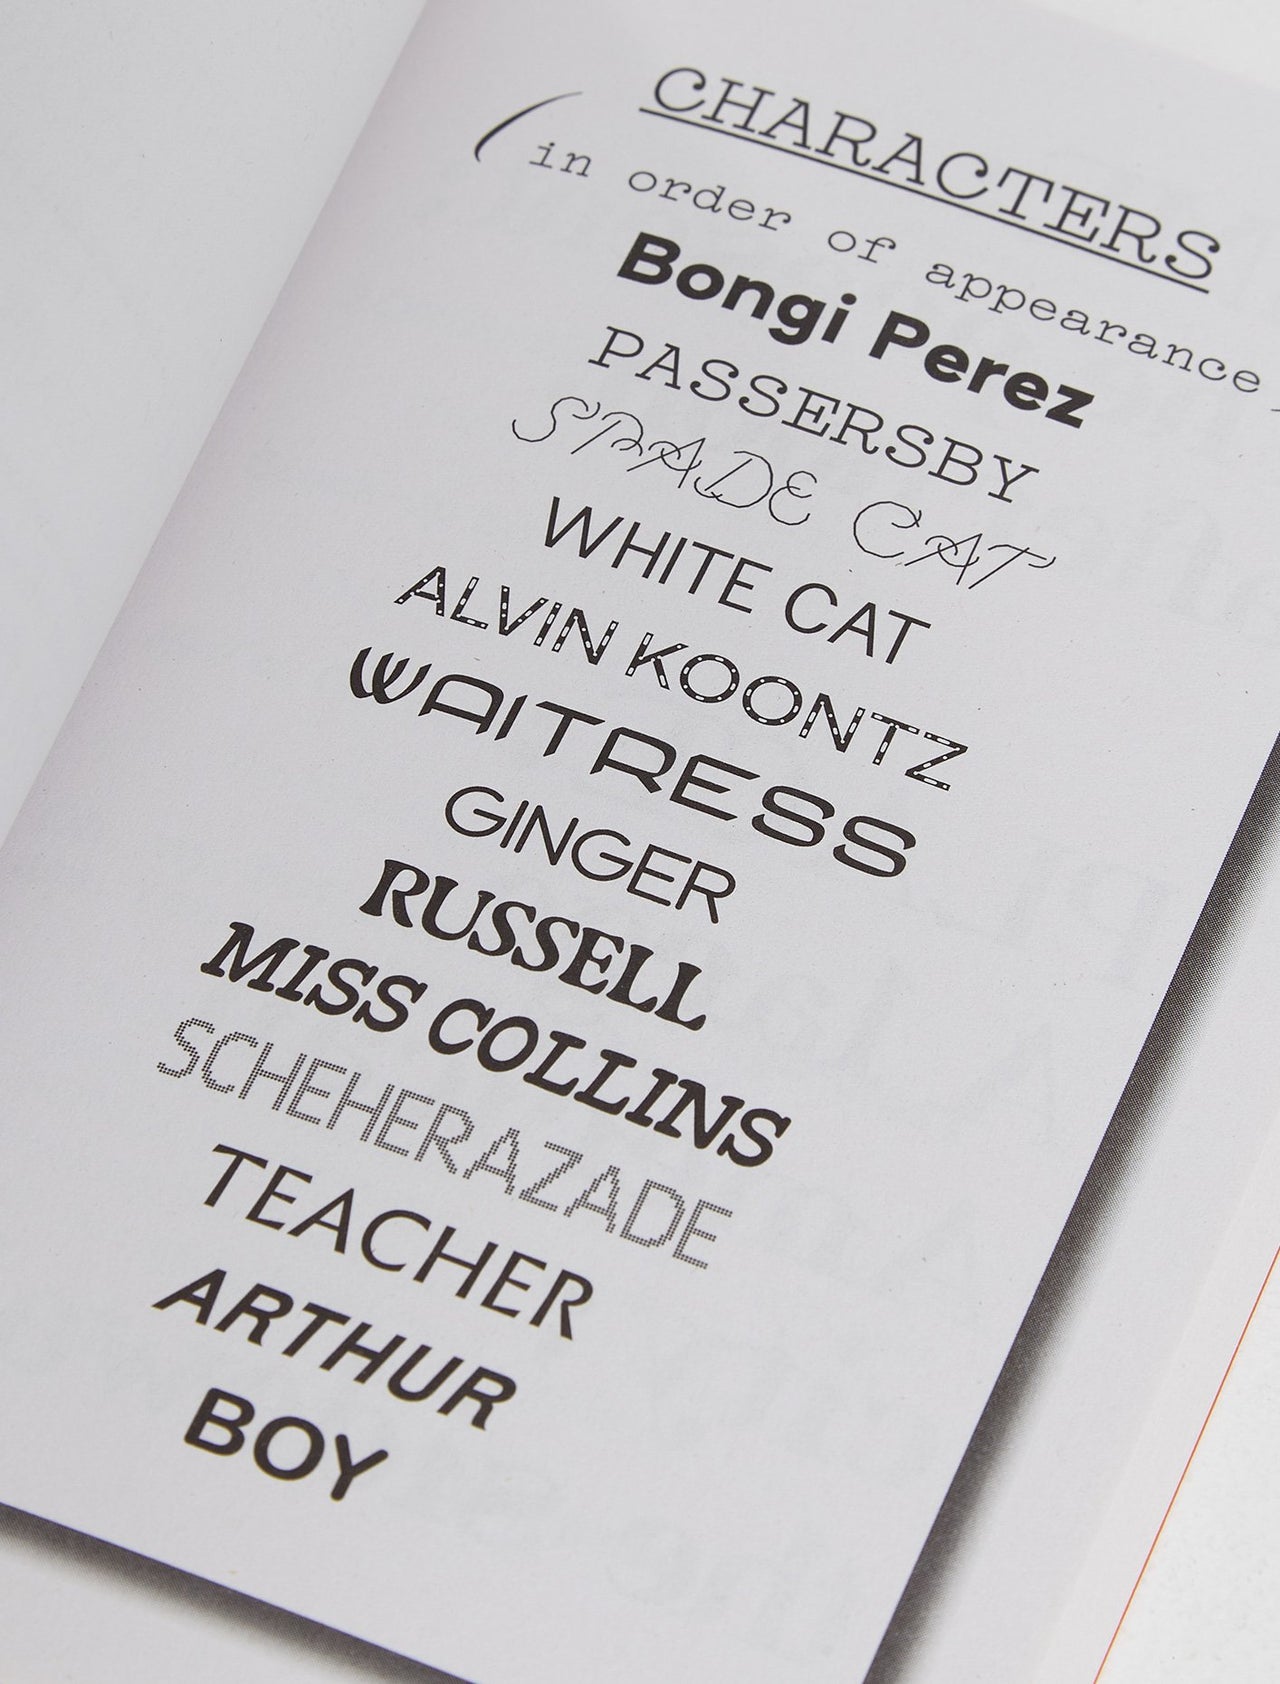 CHARACTERS
(in order of appearance)
Bongi Perez
PASSERSBY
SPADE CAT
WHITE CAT
ALVIN KOONTZ
WAITRESS
GINGER
RUSSELL
MISS COLLINS
SCHEHERAZADE
TEACHER
ARTHUR
BOY